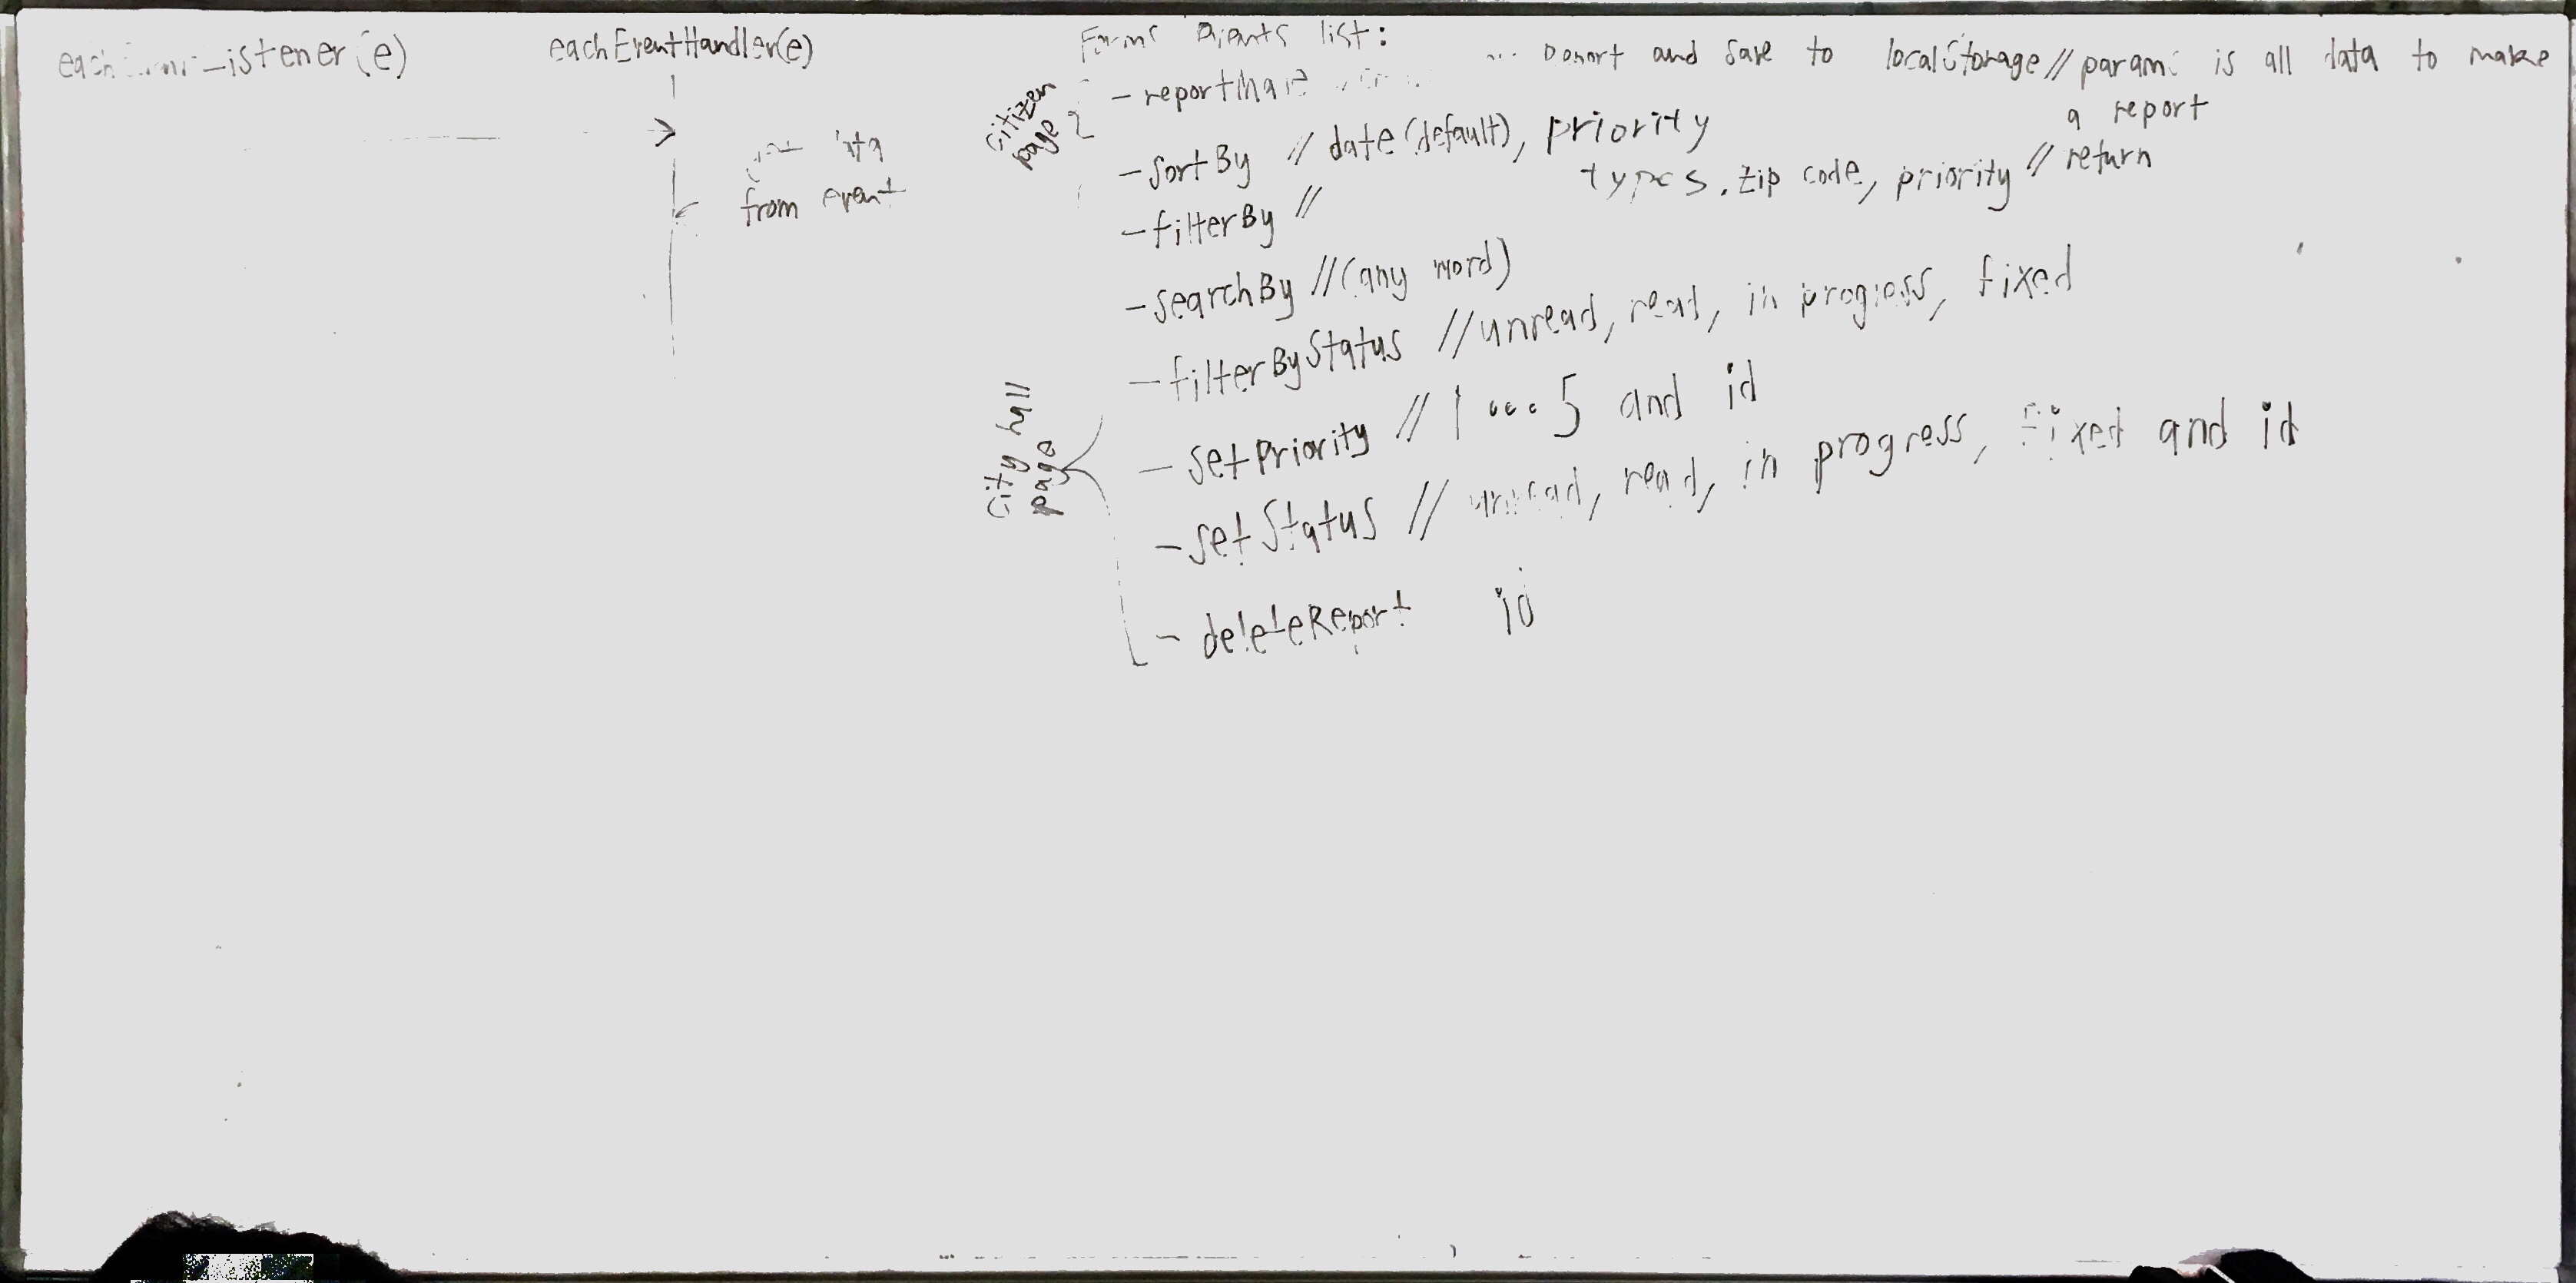 eachEventListener(e)
eachEventHandler(e)
get data
from event
Forms Events list:
Citizen
page
- reportMade
Report and save to localStorage // params is all data to make
a report
- sortBy // date (default), priority
- filterBy // types, zip code, priority // return
- searchBy // (any word)
- filterByStatus // unread, read, in progress, fixed
City hall
page
- setPriority // 1 ... 5 and id
- setStatus // unread, read, in progress, fixed and id
- deleteReport id